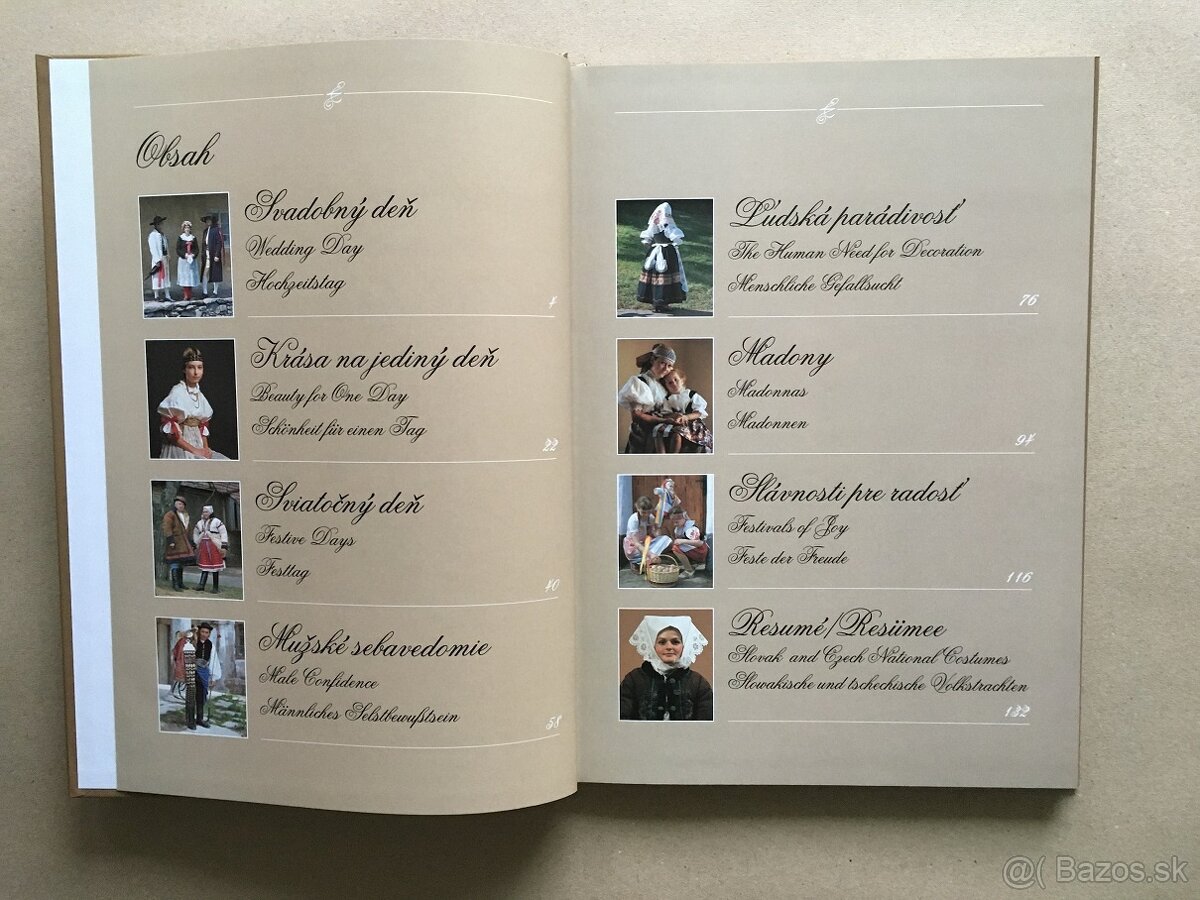 Obsah
Svadobný deň
Wedding Day
Hochzeitstag
4
Krása na jediný deň
Beauty for One Day
Schönheit für einen Tag
22
Sviatočný deň
Festive Days
Festtag
40
Mužské sebavedomie
Male Confidence
Männliches Selstbewußtsein
58
Ľudská parádivosť
The Human Need for Decoration
Menschliche Gefallsucht
76
Madony
Madonnas
Madonnen
94
Slávnosti pre radosť
Festivals of Joy
Feste der Freude
116
Resumé/Resümee
Slovak and Czech National Costumes
Slowakische und tschechische Volkstrachten
132
@( Bazos.sk